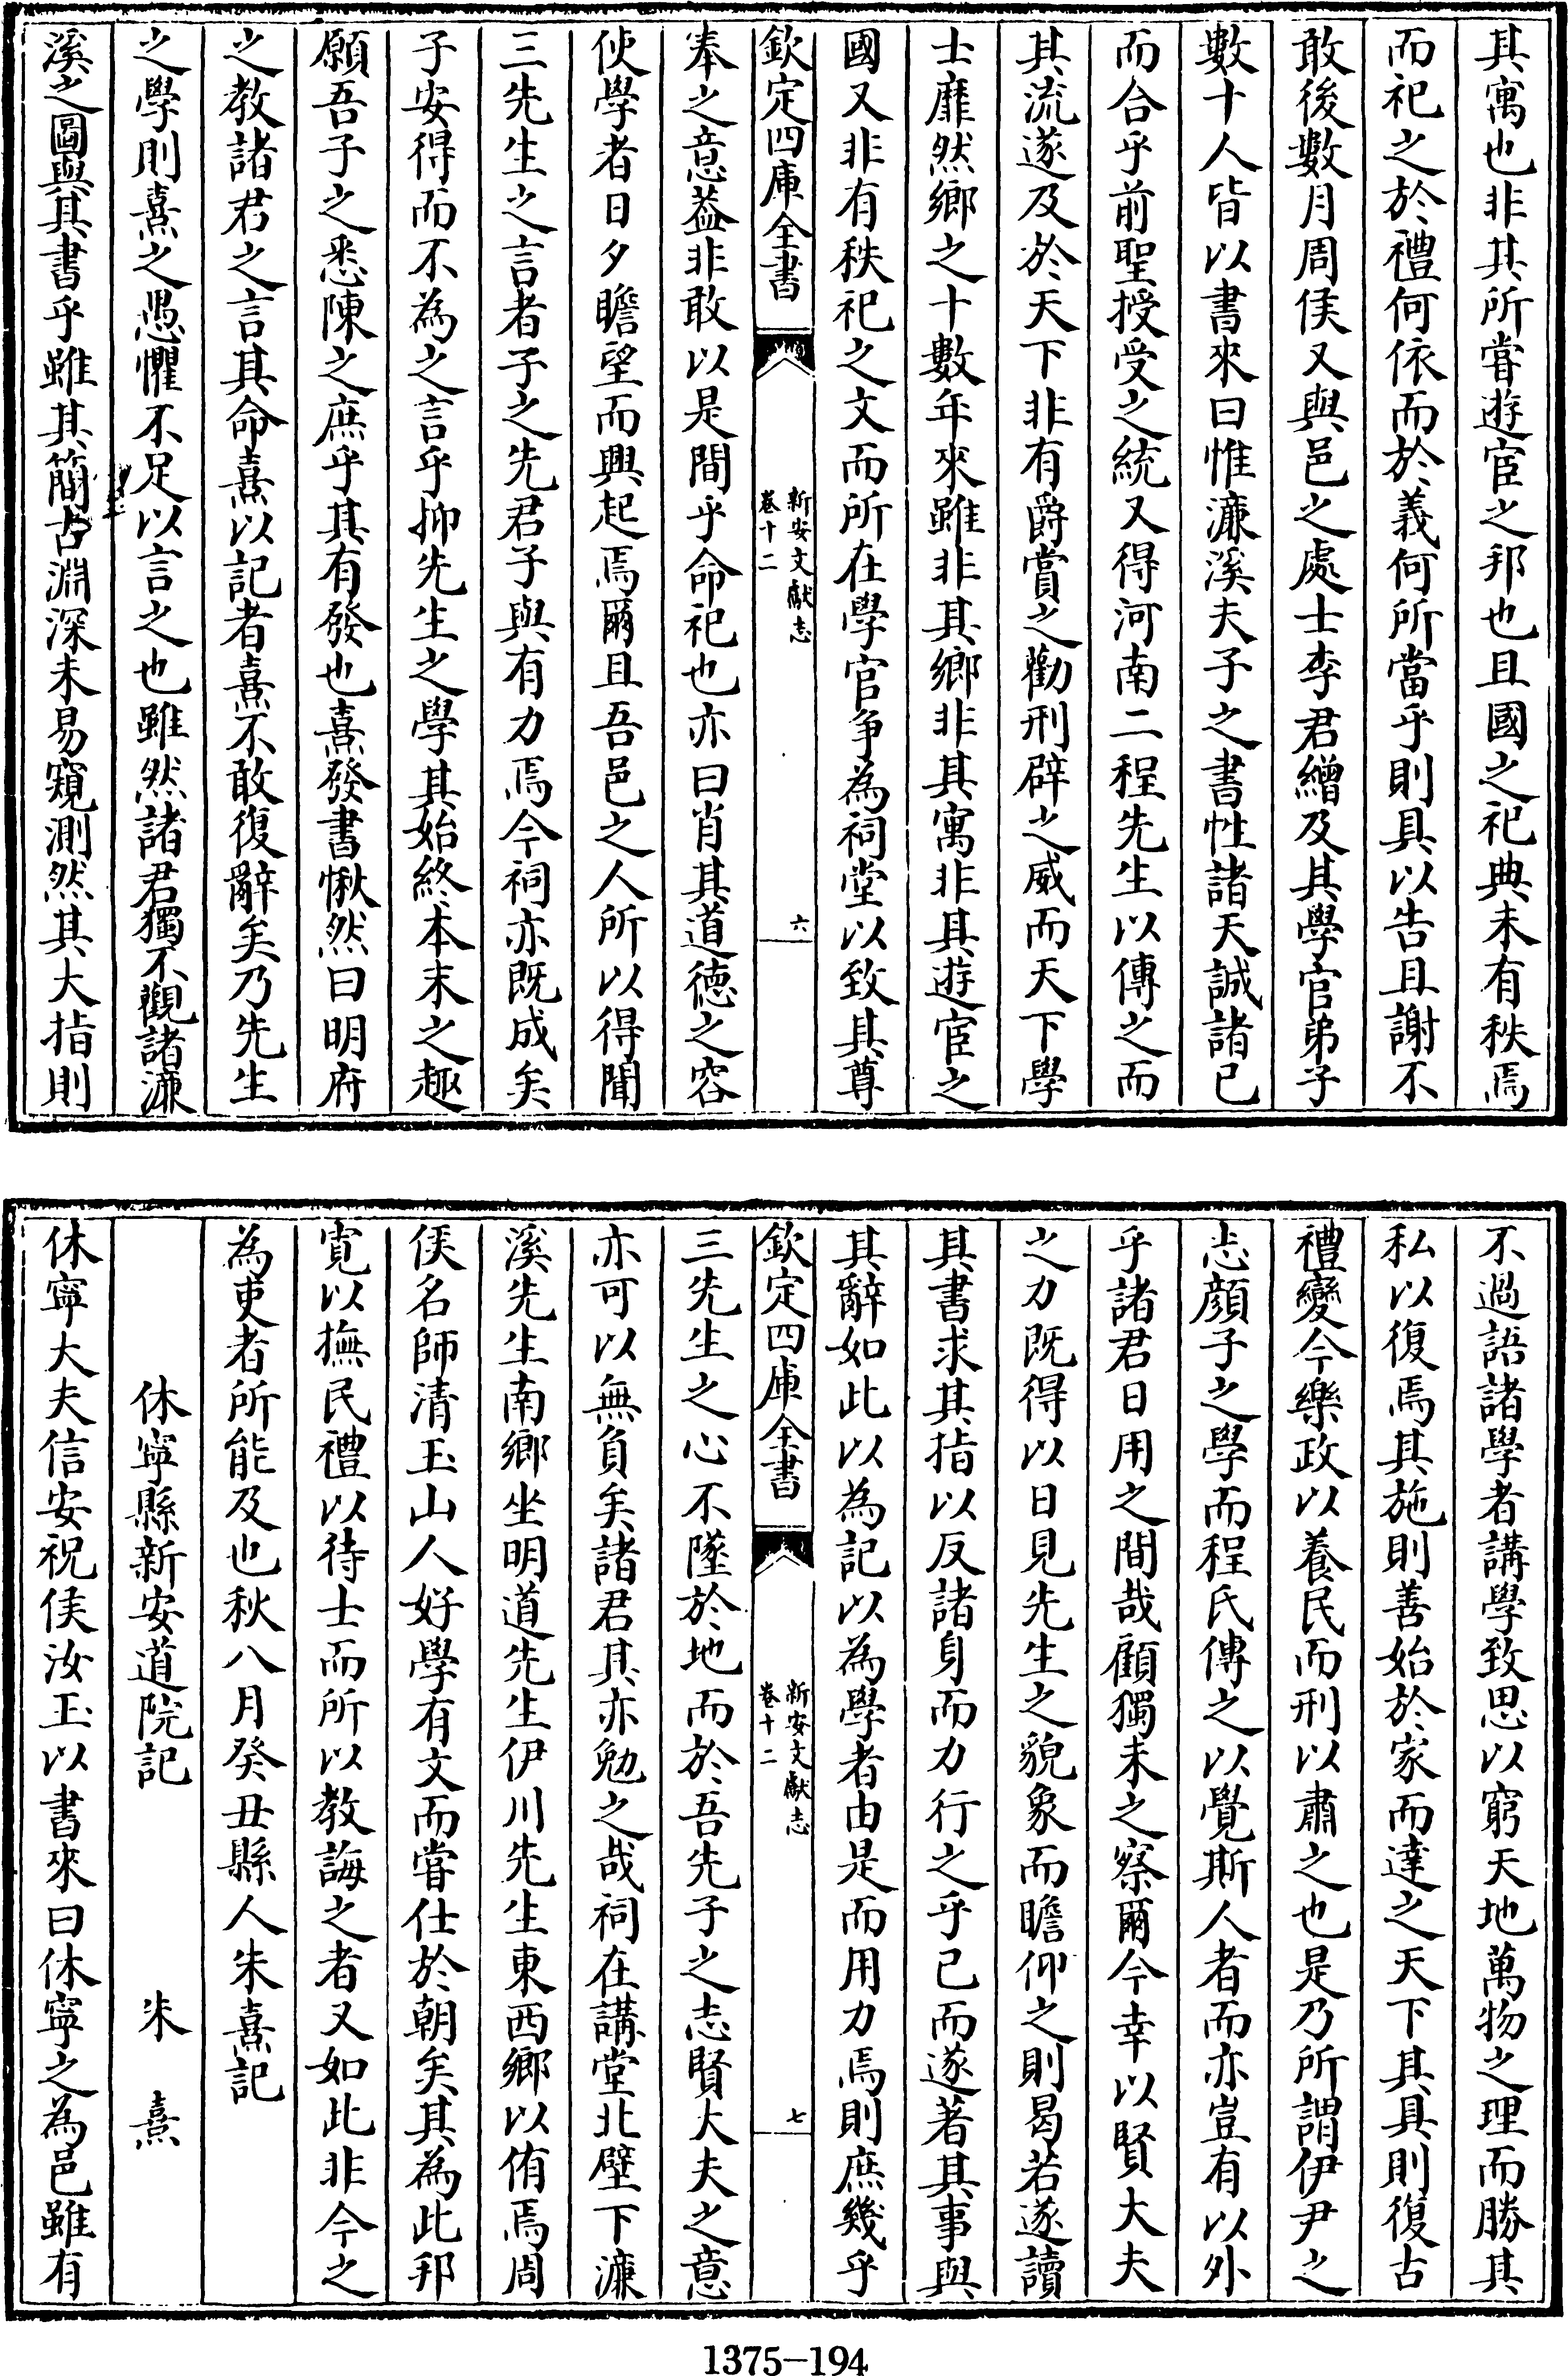 其寓也非其所嘗遊宦之邦也且國之祀典未有秩焉
而祀之於禮何依而於義何所當乎則具以告且謝不
敢後數月周侯又與邑之處士李君繒及其學官弟子
數十人皆以書來曰惟濂溪夫子之書性諸天誠諸已
而合乎前聖授受之統又得河南二程先生以傳之而
其流遂及於天下非有爵賞之勸刑辟之威而天下學
士靡然鄉之十數年來雖非其鄉非其寓非其遊宦之
國又非有秩祀之文而所在學官争為祠堂以致其尊
欽定四庫全書
新安文獻志
卷十二
六
奉之意葢非敢以是間乎命祀也亦曰肖其道德之容
使學者日夕瞻望而興起焉爾且吾邑之人所以得聞
三先生之言者子之先君子與有力焉今祠亦既成矣
子安得而不為之言乎抑先生之學其始終本末之趣
願吾子之悉陳之庶乎其有發也熹發書愀然曰明府
之教諸君之言其命熹以記者熹不敢復辭矣乃先生
之學則熹之愚懼不足以言之也雖然諸君獨不觀諸濂
溪之圖與其書乎雖其簡古淵深未易窺測然其大指則
不過語諸學者講學致思以窮天地萬物之理而勝其
私以復焉其施則善始於家而達之天下其具則復古
禮變今樂政以養民而刑以肅之也是乃所謂伊尹之
志顔子之學而程氏傳之以覺斯人者而亦豈有以外
乎諸君日用之間哉顧獨未之察爾今幸以賢大夫
之力既得以日見先生之貌象而瞻仰之則曷若遂讀
其書求其指以反諸身而力行之乎已而遂著其事與
其辭如此以為記以為學者由是而用力焉則庶幾乎
欽定四庫全書
新安文獻志
卷十二
七
三先生之心不墜於地而於吾先子之志賢大夫之意
亦可以無負矣諸君其亦勉之哉祠在講堂北壁下濂
溪先生南鄉坐明道先生伊川先生東西鄉以侑焉周
侯名師清玉山人好學有文而嘗仕於朝矣其為此邦
寛以撫民禮以待士而所以教誨之者又如此非今之
為吏者所能及也秋八月癸丑縣人朱熹記
休寧縣新安道院記 朱熹
休寧大夫信安祝侯汝玉以書來曰休寧之為邑雖有
1375-194